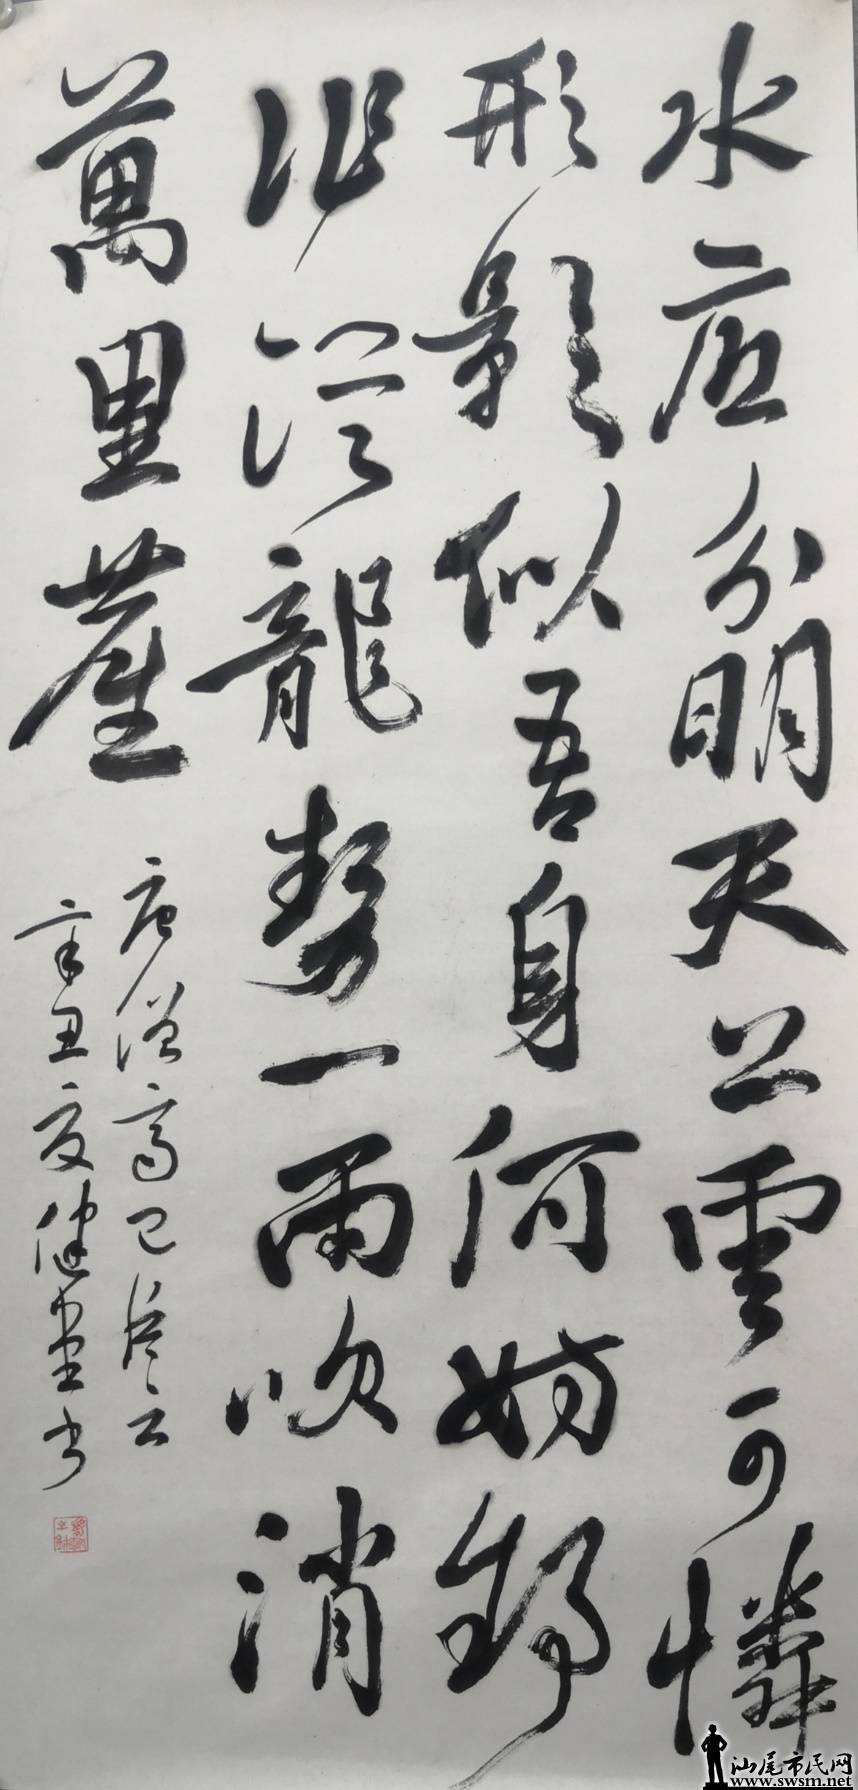 水底分明天上雲可憐
形影似吾身何妨舒
作從龍勢一雨吹消
萬里塵
唐僧齊己片云
辛丑夏健堂书
汕尾市民网
www.swsm.net